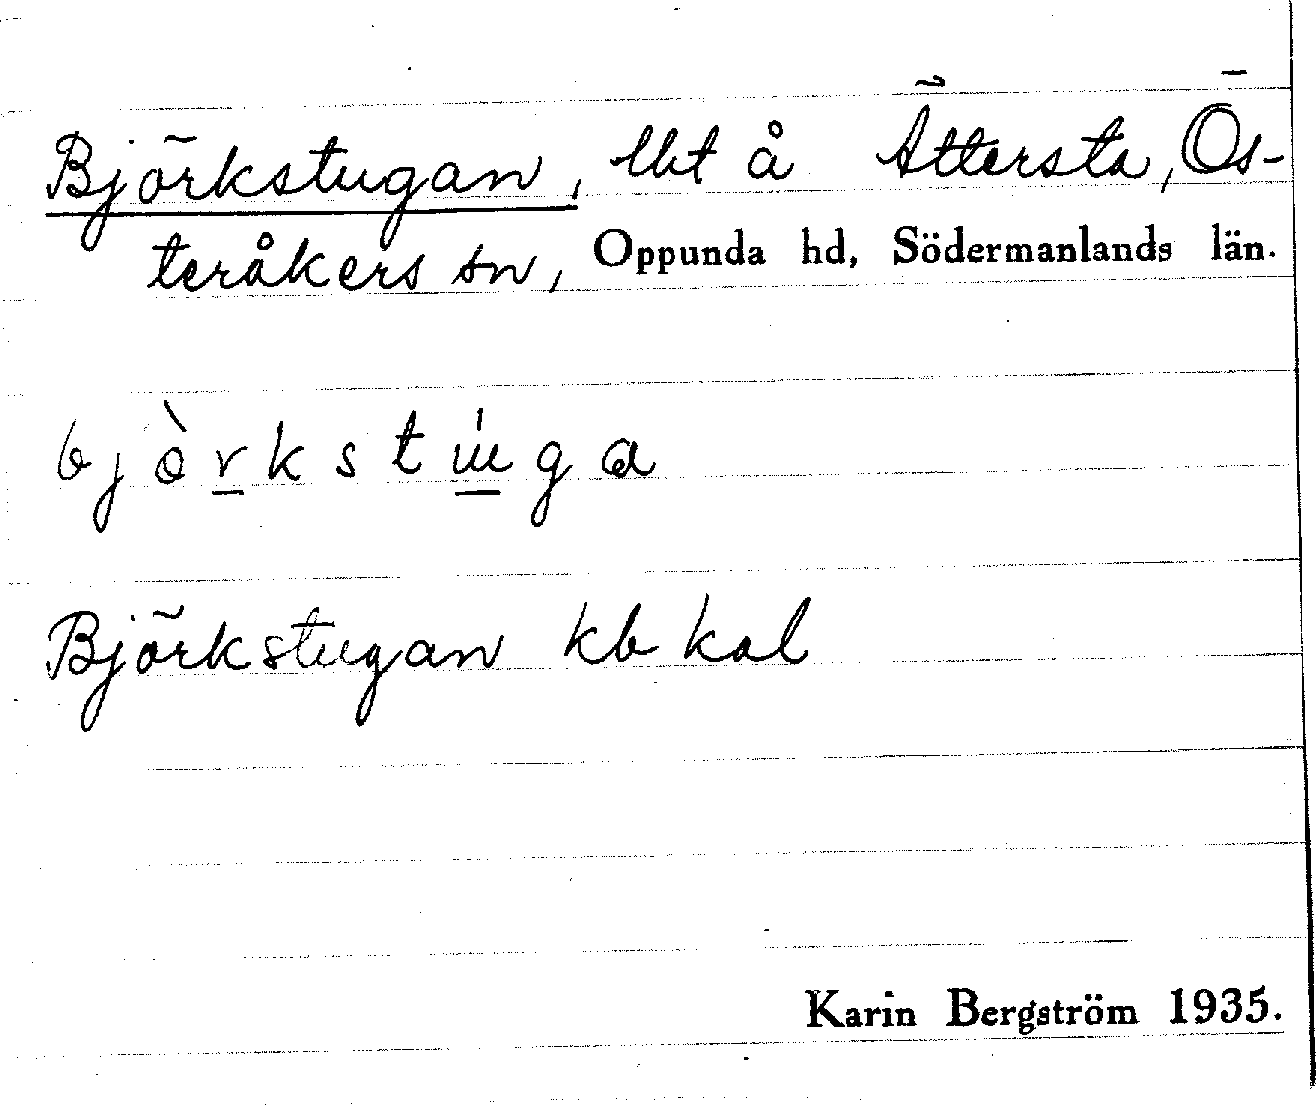 Björkstugan, lht å Ättersta, Ös-
teråkers sn, Oppunda hd, Södermanlands län.
bjòrkstúga
Björkstugan kb kal
Karin Bergström 1935.